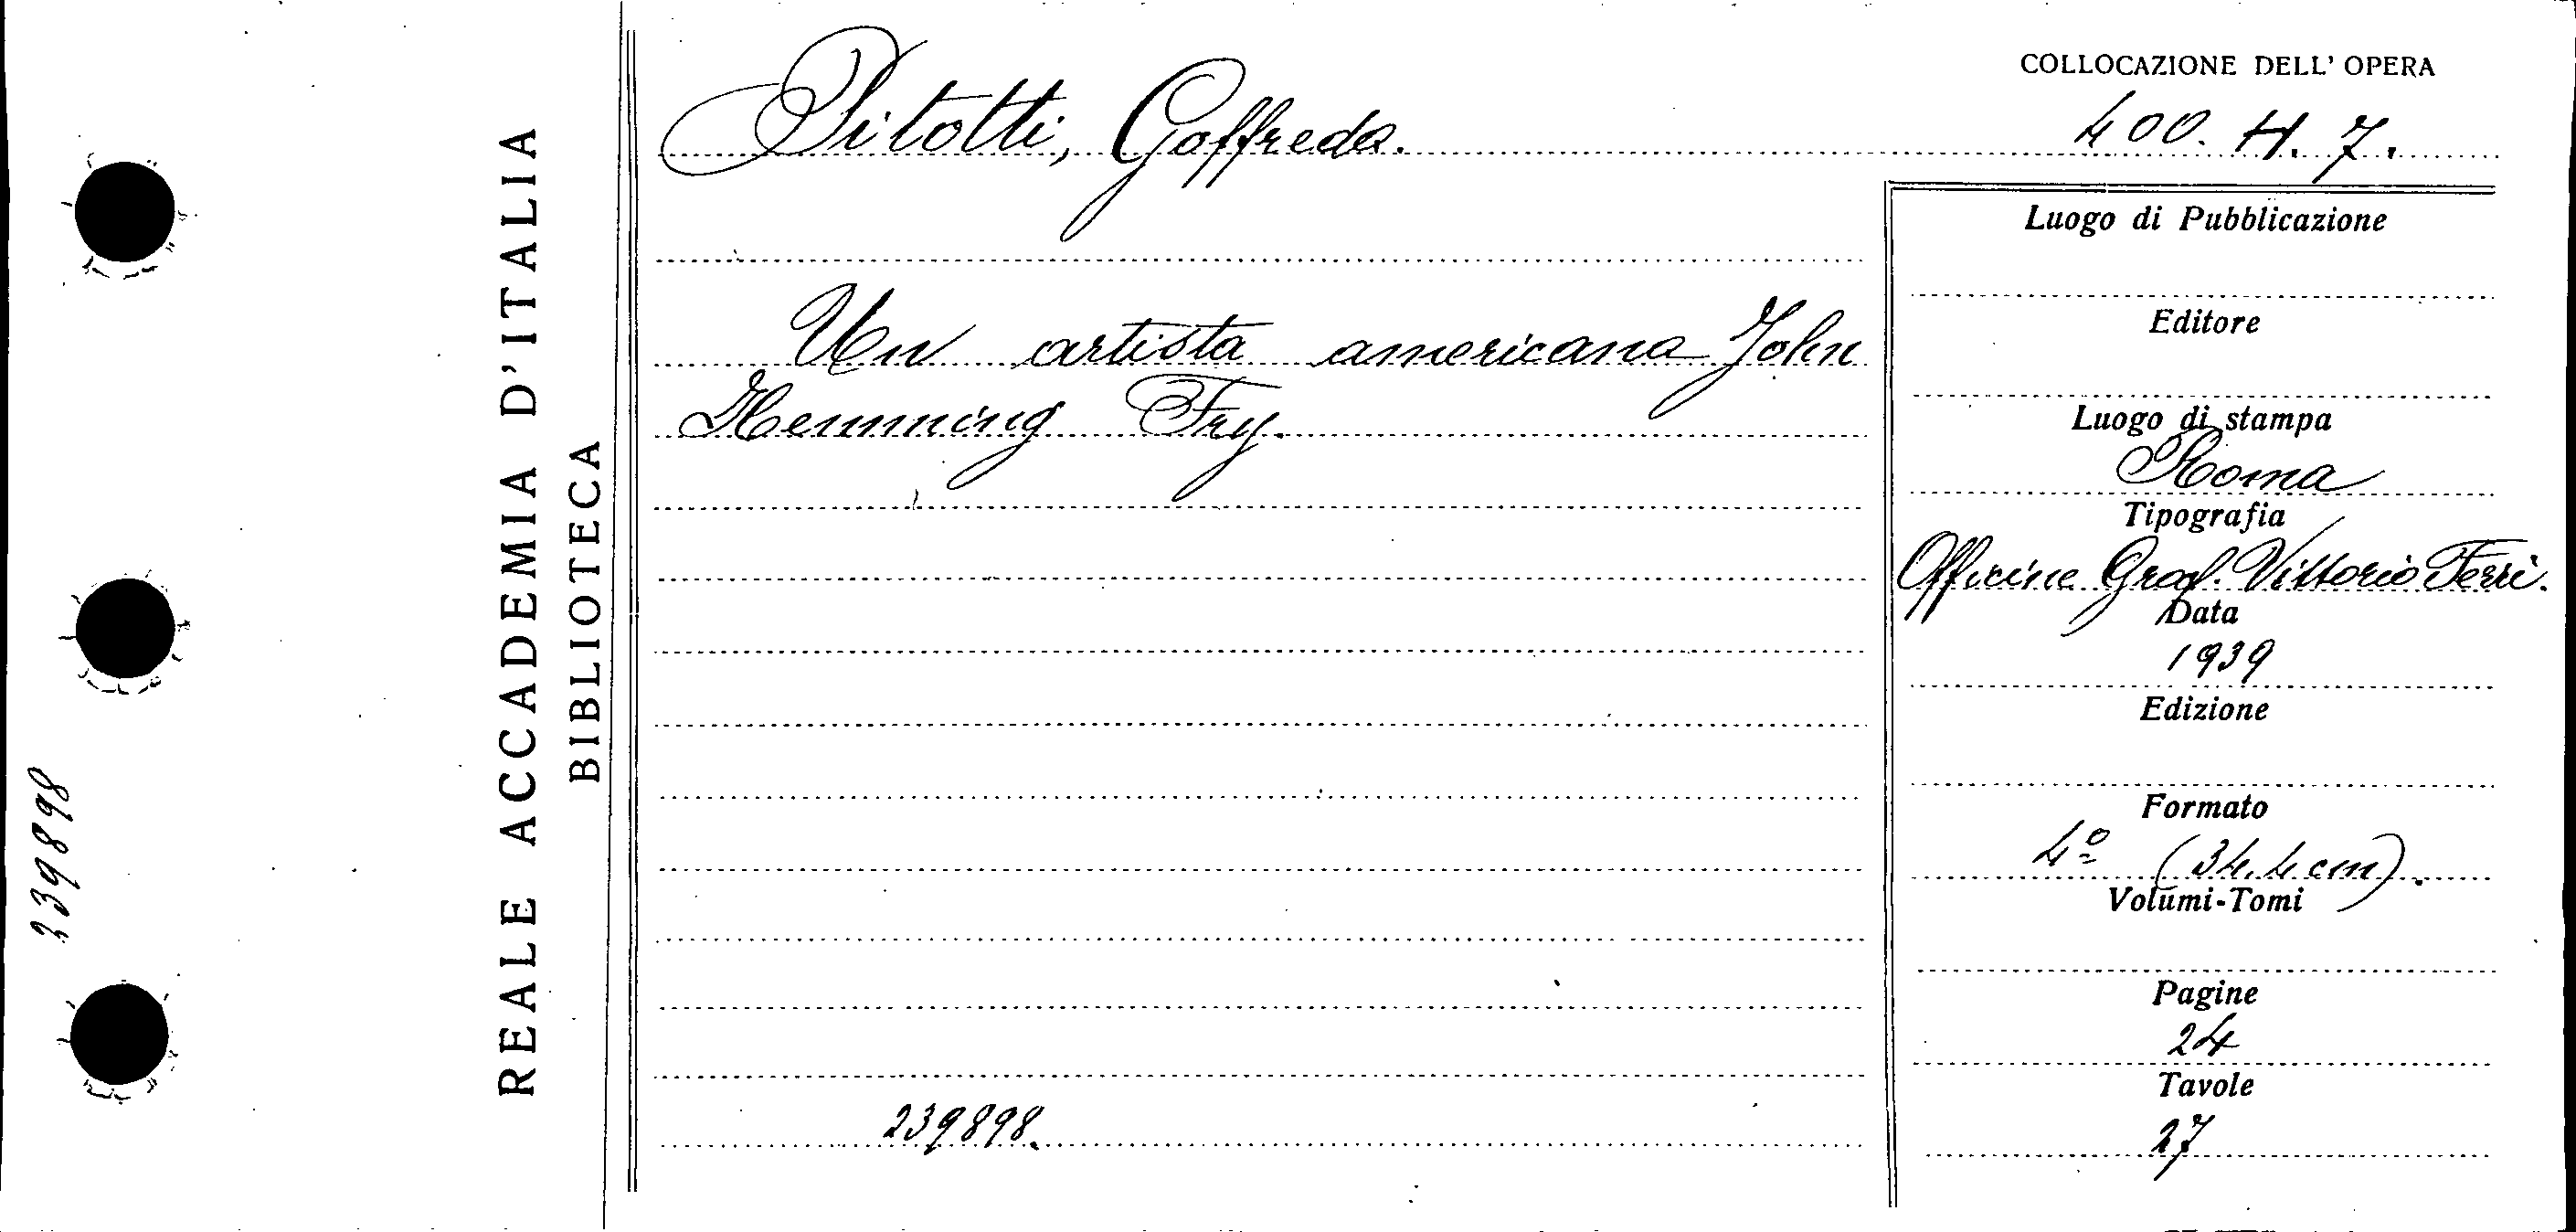 REALE ACCADEMIA D'ITALIA
BIBLIOTECA
239898
Pitotti, Goffredo.
Un artista americano John
Hemming Fry.
239898.
COLLOCAZIONE DELL' OPERA
400. H. 7.
Luogo di Pubblicazione
Editore
Luogo di stampa
Roma
Tipografia
Officine Graf. Vittorio Ferri.
Data
1939
Edizione
Formato
4º (34.4 cm).
Volumi-Tomi
Pagine
24
Tavole
27